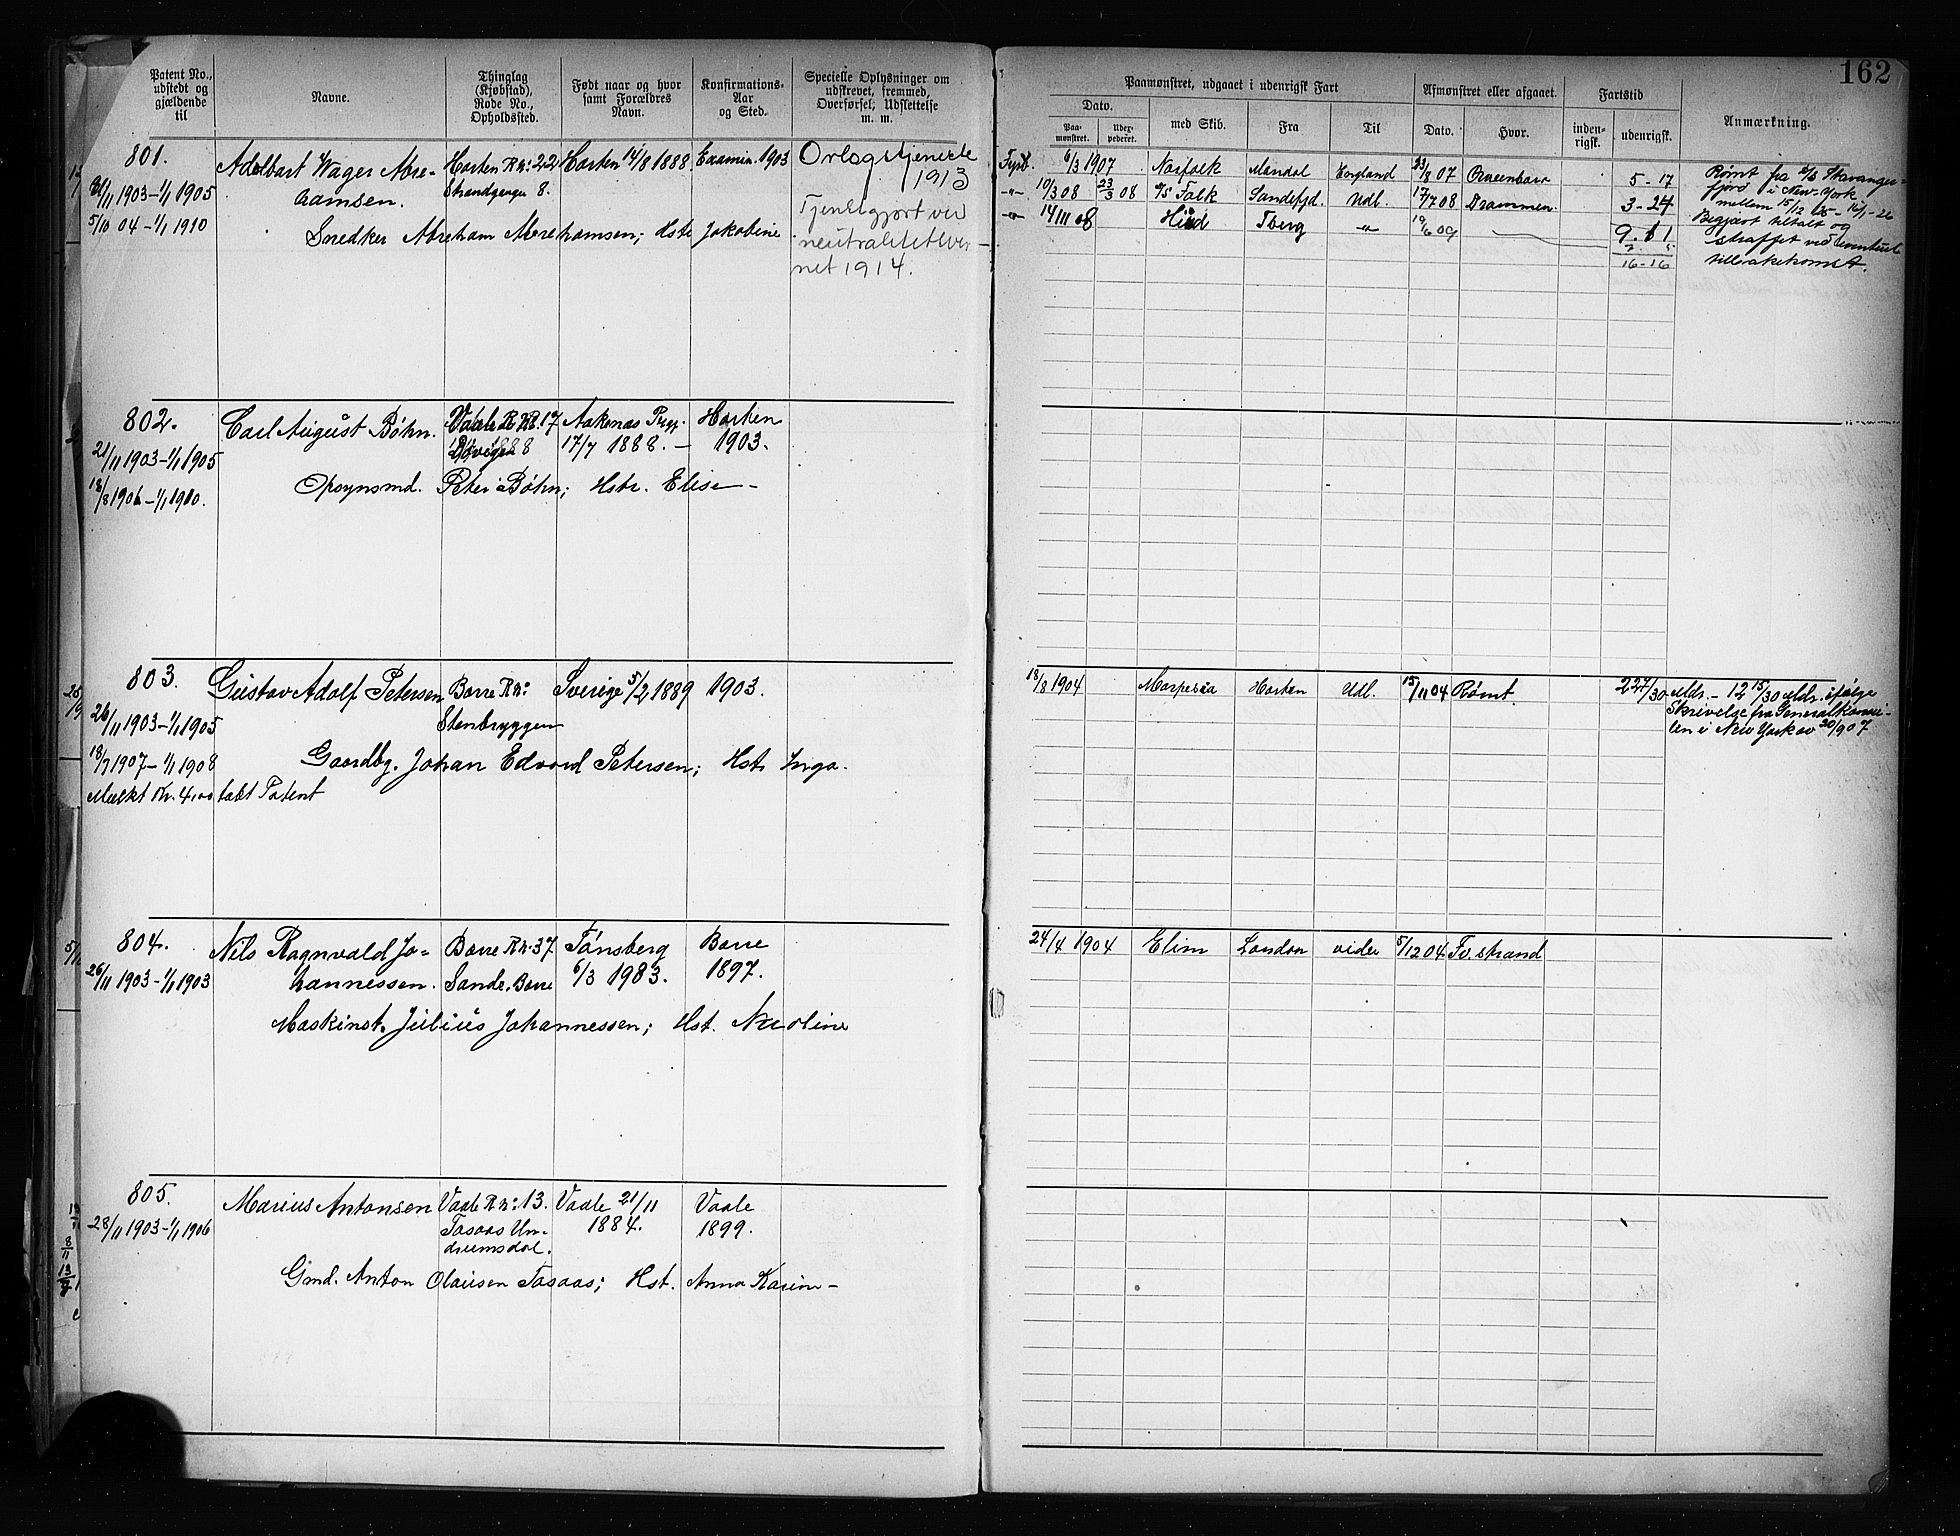 162
Patent No., udstedt og gjældende til
Navne.
Thinglag (Kjøbstad), Rode No., Opholdssted.
Født naar og hvor samt Forældres Navn.
Konfirmations-Aar og Sted.
Specielle Oplysninger om udskrevet, fremmed, Overførsel; Udslettelse m. m.
Paamønstret, udgaaet i udenrigsk Fart
Afmønstret eller afgaaet.
Fartstid
Anmærkning.
Dato.
med Skib.
Fra
Til
Dato.
Hvor.
inden-rigsk.
udenrigsk.
Paa-mønstret.
801.
Adelbart Wager Abra-
hamsen.
Horten R№ 22
Strandgaden 8.
Horten 14/8 1888.
Examin. 1903
Orlogstjeneste
1913
Tjenstgjort ved
neutralitetsver-
net 1914.
21/11 1903-1/1 1905
5/10 04-1/1 1910
Snedker Abraham Abrahamsen; Hstr Jakobine
Fyrb. 6/3 1907 Norfolk Mandal England 23/8 07 5-17
-"- 10/3 08 23/3 08 S/S Falk Sandefjd. Udl. 17/7 08 Drammen. 3-24
-"- 14/III 08 Hird Tberg -"- 19/6 09 9.11
16-16
Rømt fra S/S Stavanger-
fjord i New-York
mellem 15/12 25-16/1-26
Begjært tiltalt og
straffet ved eventuel
tilbakekomst.
802.
Carl August Bøhn.
Vaale R№ 17
Aakenæs Bryg.
17/7 1888.-
Horten
1903.
21/11 1903-1/1 1905
18/8 1906-1/1 1910.
Opsynsmd. Peter Bøhn; Hstr. Elise-
803.
Gustav Adolf Petersen
Borre R№:
Stenbryggen
Sverige 5/2 1889
1903.
26/11 1903-1/1 1905
18/7 1907-1/1 1908
Mulkt Kr. 4,00 tabt Patent
Gaardbg. Johan Edvard Petersen; Hstr Inga.
18/8 1904 Marpesia Horten Udl. 15/11 04 Rømt. 2 27/30 Mdr.- 12 15/30 Mdr. ifølge
Skrivelse fra Generalkonsu-
len i New York av 20/9 07
804.
Nils Ragnvald Jo-
hannessen.
Borre R№ 37
Sande, Borre
Tønsberg
6/3 1983.
Borre
1897.
26/11 1903-1/1 1903
Maskinst. Julius Johannessen; Hst. Nicoline
24/4 1904 Elim London vider 5/12 04 Fv. strand
805.
Marius Antonsen
Vaale R№: 13.
Taasaas Un-
drumsdal.
Vaale 21/11
1884.
Vaale
1899.
28/11 1903-1/1 1906
Gmd. Anton Olausen Taasaas; Hst. Anna Karin-